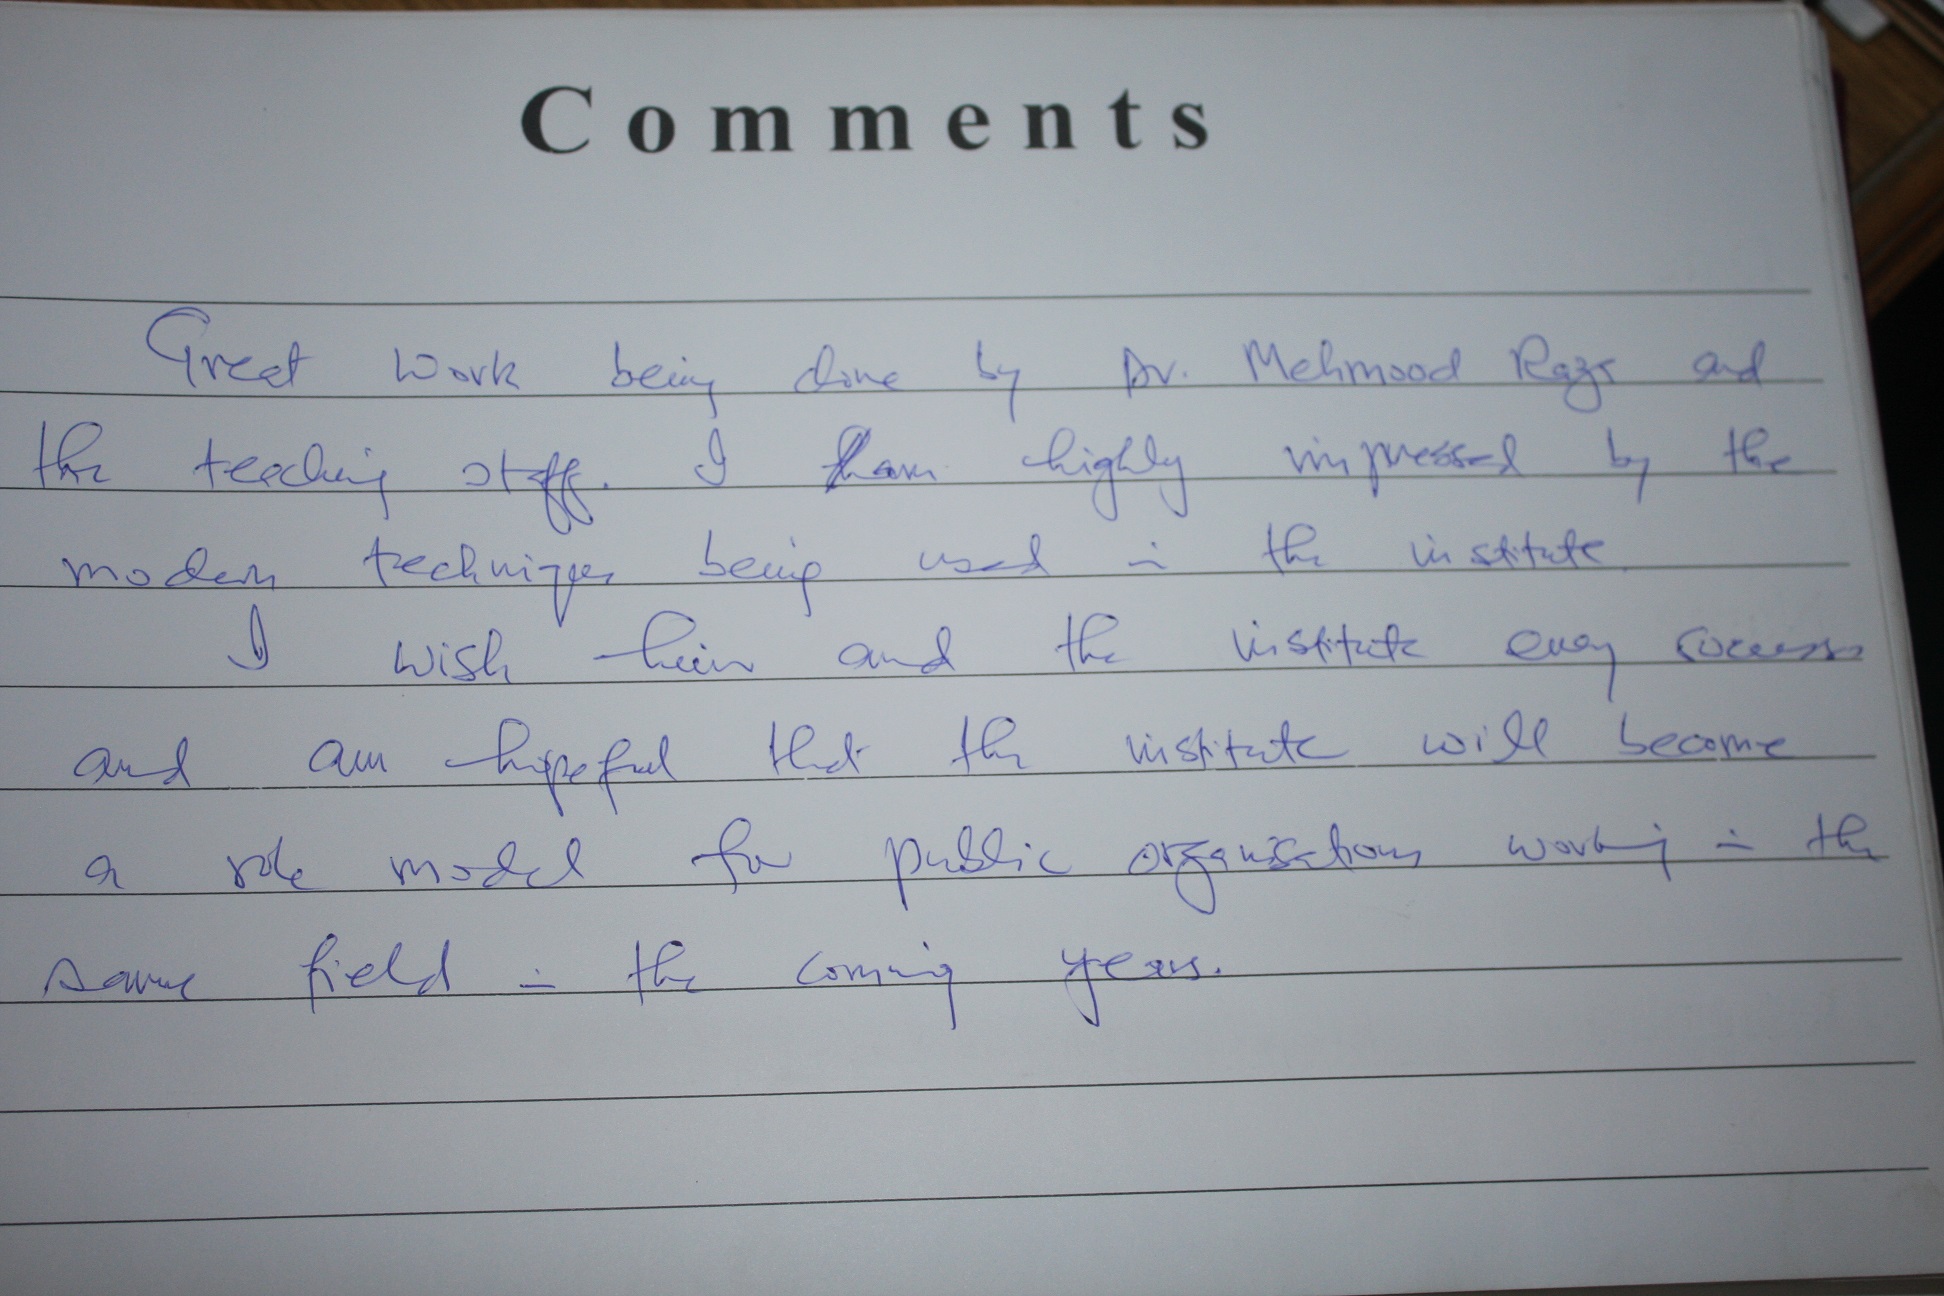 Comments
Great work being done by Dr. Mehmood Raza and
the teaching staff. I am highly impressed by the
modern techniques being used in the institute.
I wish him and the institute every success
and am hopeful that the institute will become
a role model for public organisations working in the
same field in the coming years.